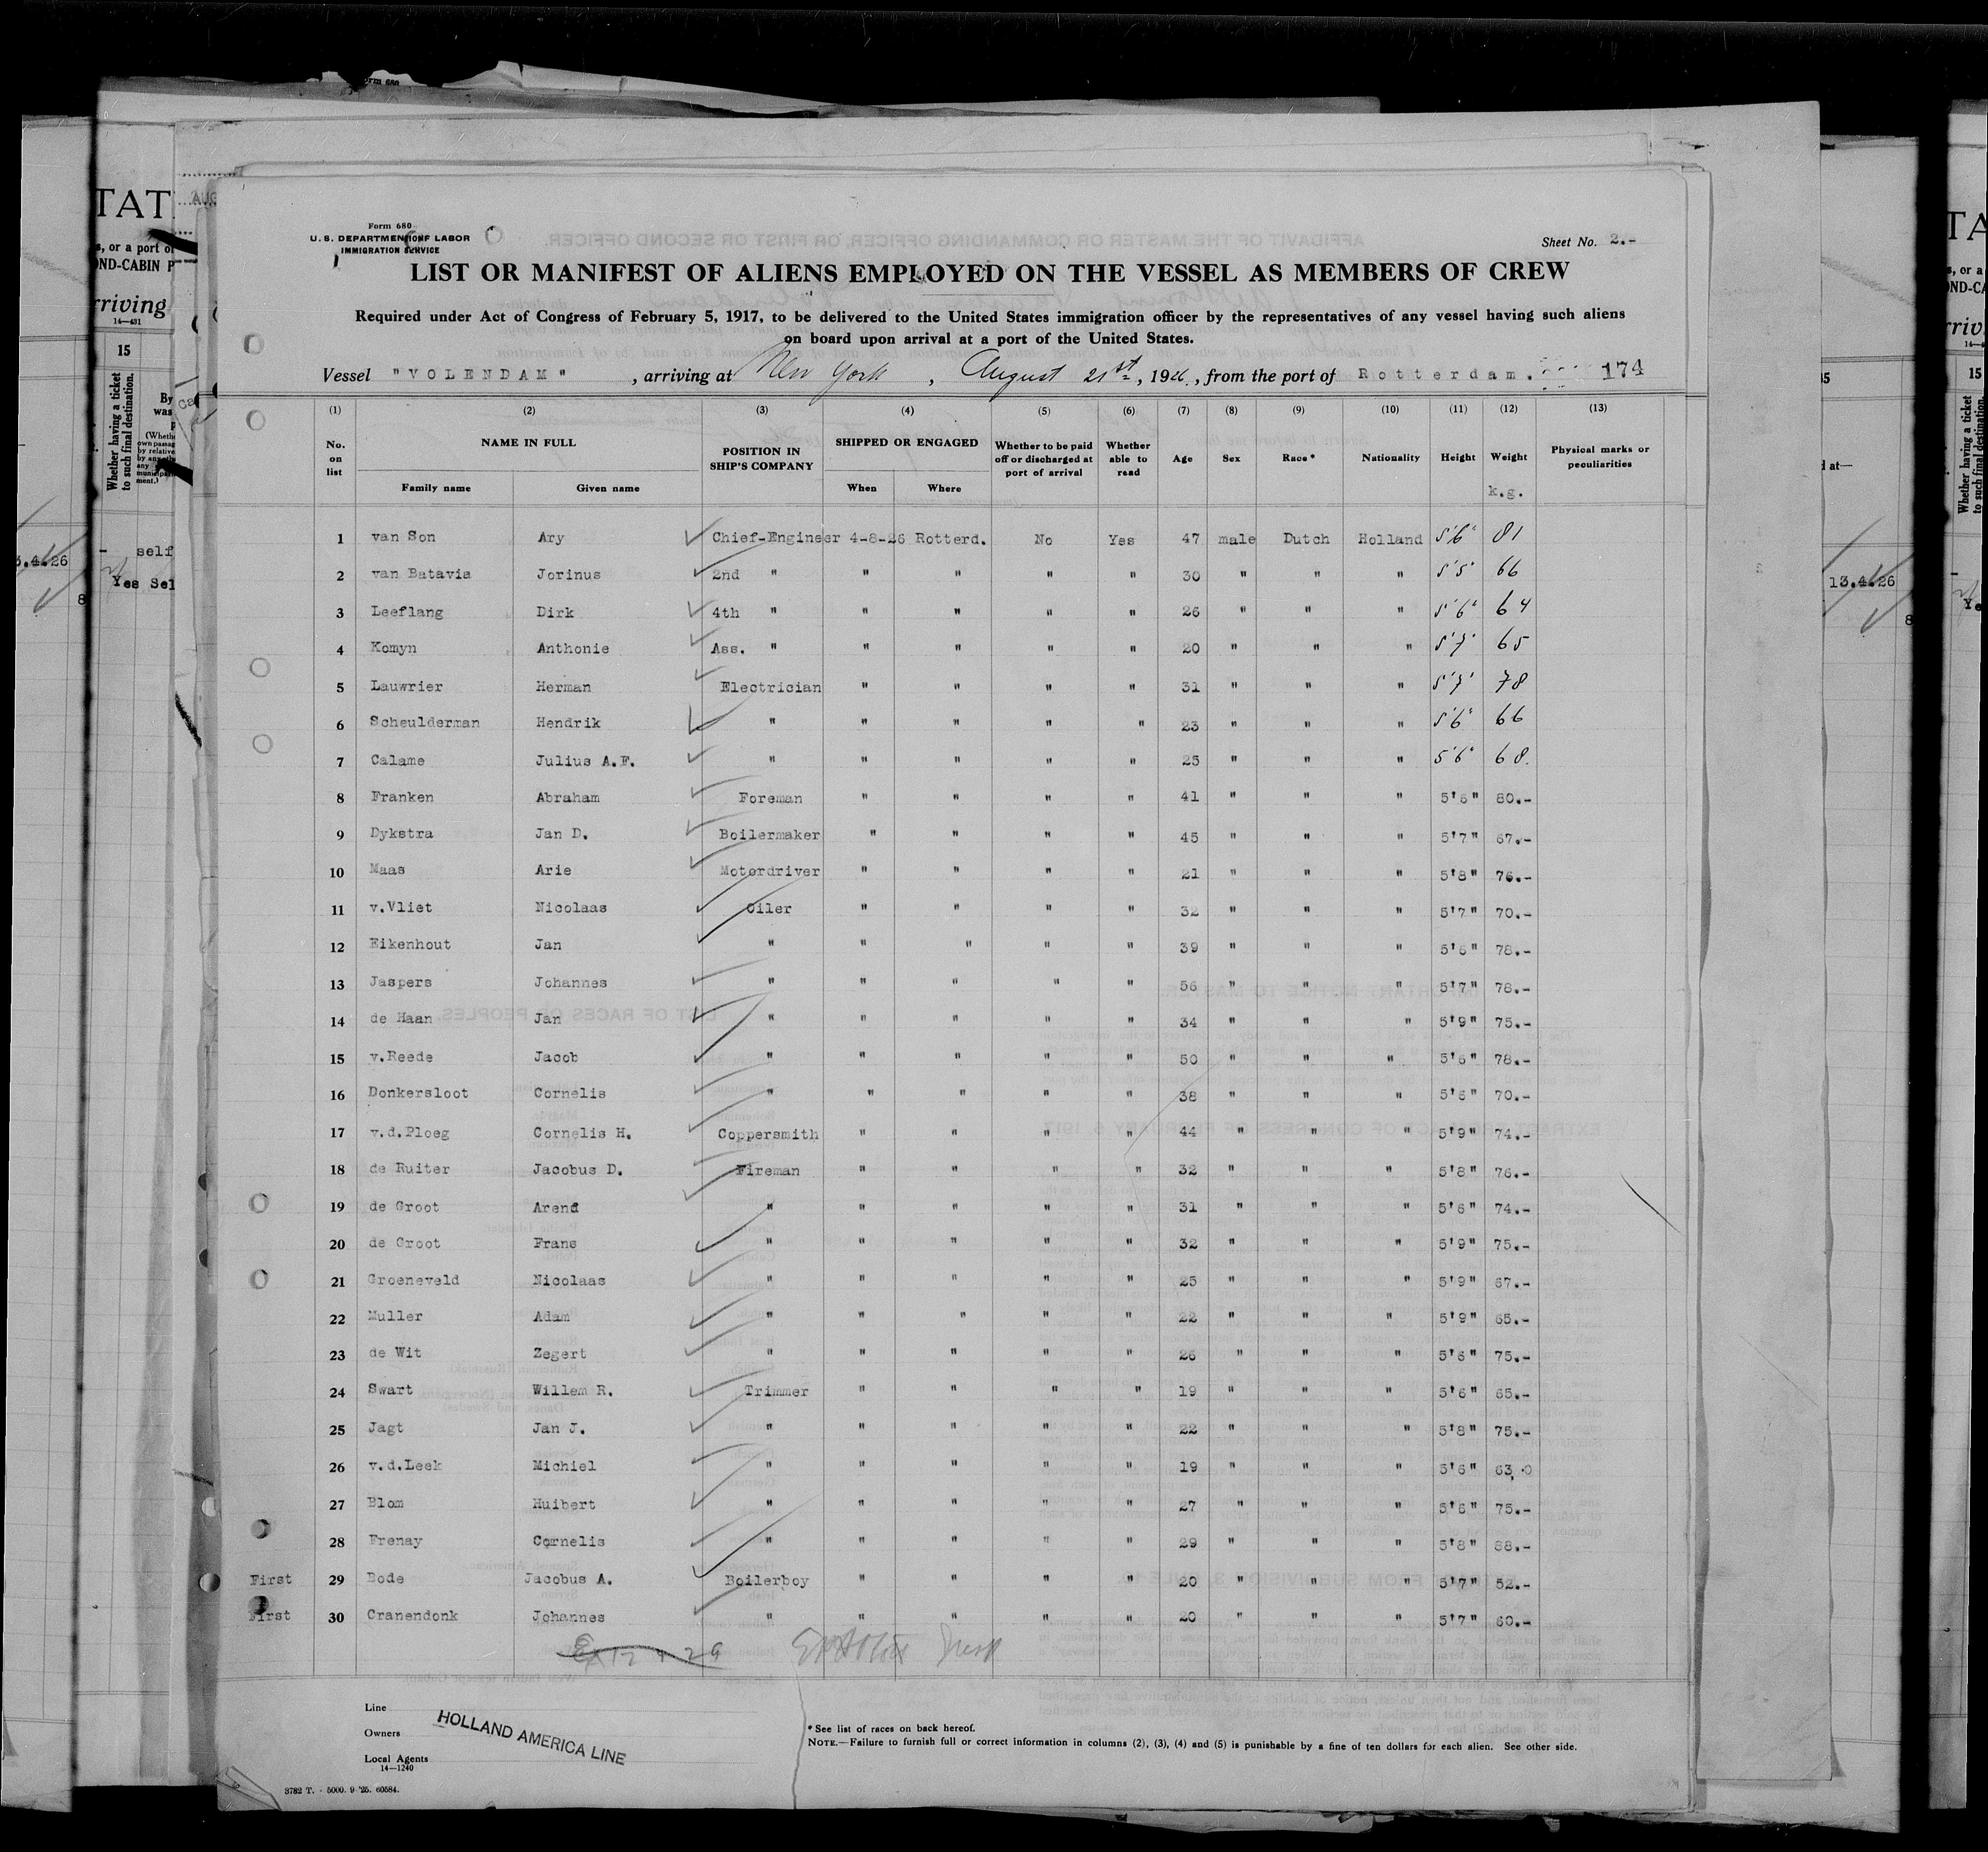 Form 680
U. S. DEPARTMENT OF LABOR
IMMIGRATION SERVICE
Sheet No. 2.-
LIST OR MANIFEST OF ALIENS EMPLOYED ON THE VESSEL AS MEMBERS OF CREW
Required under Act of Congress of February 5, 1917, to be delivered to the United States immigration officer by the representatives of any vessel having such aliens
on board upon arrival at a port of the United States.
Vessel "VOLENDAM", arriving at New York, August 21st, 1926, from the port of Rotterdam. 174
(1) (2) (3) (4) (5) (6) (7) (8) (9) (10) (11) (12) (13)
No. on list NAME IN FULL Family name Given name POSITION IN SHIP'S COMPANY SHIPPED OR ENGAGED When Where Whether to be paid off or discharged at port of arrival Whether able to read Age Sex Race* Nationality Height Weight k.g. Physical marks or peculiarities
1 van Son Ary Chief-Engineer 4-8-26 Rotterd. No Yes 47 male Dutch Holland 5'6" 81
2 van Batavia Jorinus 2nd " " " " " 30 " " " 5'5" 66
3 Leeflang Dirk 4th " " " " " 26 " " " 5'6" 64
4 Komyn Anthonie Ass. " " " " " 20 " " " 5'7" 65
5 Lauwrier Herman Electrician " " " " 31 " " " 5'7" 78
6 Scheulderman Hendrik " " " " " 23 " " " 5'6" 66
7 Calame Julius A.F. " " " " " 25 " " " 5'6" 68.
8 Franken Abraham Foreman " " " " 41 " " " 5'6" 80.-
9 Dykstra Jan D. Boilermaker " " " " 45 " " " 5'7" 67.-
10 Maas Arie Motordriver " " " " 21 " " " 5'8" 76.-
11 v.Vliet Nicolaas Oiler " " " " 32 " " " 5'7" 70.-
12 Eikenhout Jan " " " " " 39 " " " 5'6" 78.-
13 Jaspers Johannes " " " " " 56 " " " 5'7" 78.-
14 de Haan Jan " " " " " 34 " " " 5'9" 75.-
15 v.Reede Jacob " " " " " 50 " " " 5'6" 78.-
16 Donkersloot Cornelis " " " " " 38 " " " 5'6" 70.-
17 v.d.Ploeg Cornelis H. Coppersmith " " " " 44 " " " 5'9" 74.-
18 de Ruiter Jacobus D. Fireman " " " " 32 " " " 5'8" 76.-
19 de Groot Arend " " " " " 31 " " " 5'6" 74.-
20 de Groot Frans " " " " " 32 " " " 5'9" 75.-
21 Groeneveld Nicolaas " " " " " 25 " " " 5'9" 67.-
22 Muller Adam " " " " " 22 " " " 5'9" 65.-
23 de Wit Zegert " " " " " 26 " " " 5'6" 75.-
24 Swart Willem R. Trimmer " " " " 19 " " " 5'6" 65.-
25 Jagt Jan J. " " " " " 22 " " " 5'8" 75.-
26 v.d.Leek Michiel " " " " " 19 " " " 5'6" 63,0
27 Blom Huibert " " " " " 27 " " " 5'6" 75.-
28 Frenay Cornelis " " " " " 29 " " " 5'8" 68.-
First 29 Bode Jacobus A. Boilerboy " " " " 20 " " " 5'7" 52.-
First 30 Cranendonk Johannes " " " " " 20 " " " 5'7" 60.-
Line
Owners
Local Agents
HOLLAND AMERICA LINE
14—1240
* See list of races on back hereof.
NOTE.—Failure to furnish full or correct information in columns (2), (3), (4) and (5) is punishable by a fine of ten dollars for each alien. See other side.
3782 T. - 5000. 9 '25. 60584.